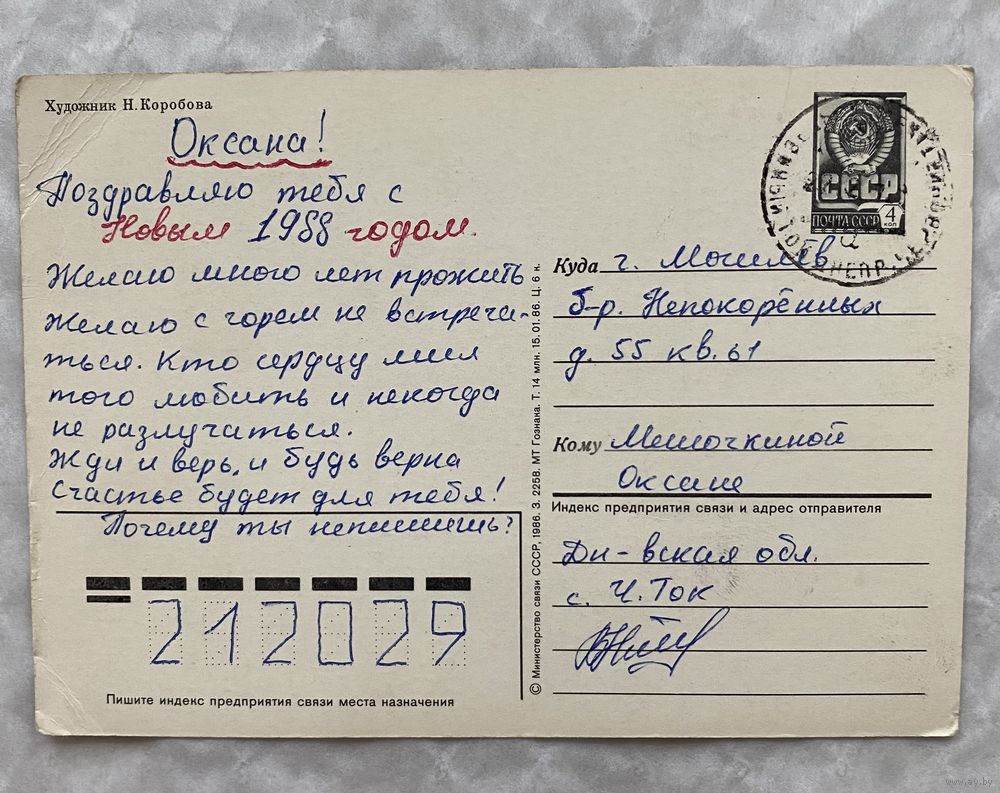 Художник Н. Коробова
Оксана!
Поздравляю тебя с
Новым 1988 годом.
Желаю много лет прожить
Желаю с горем не встреча-
ться. Кто сердцу мил
того любить и некогда
не разлучаться.
Жди и верь, и будь верна
Счастье будет для тебя!
Почему ты непишишь?
212029
Пишите индекс предприятия связи места назначения
© Министерство связи СССР, 1986. З. 2258. МТ Гознака. Т. 14 млн. 15.01.86. Ц. 6 к.
СССР
ПОЧТА СССР
4
КОП
Куда г. Могилев
б-р. Непокорённых
д. 55 кв. 61
Кому Мешочкиной
Оксане
Индекс предприятия связи и адрес отправителя
Дн-вская обл.
с. Ч. Ток
www.ay.by